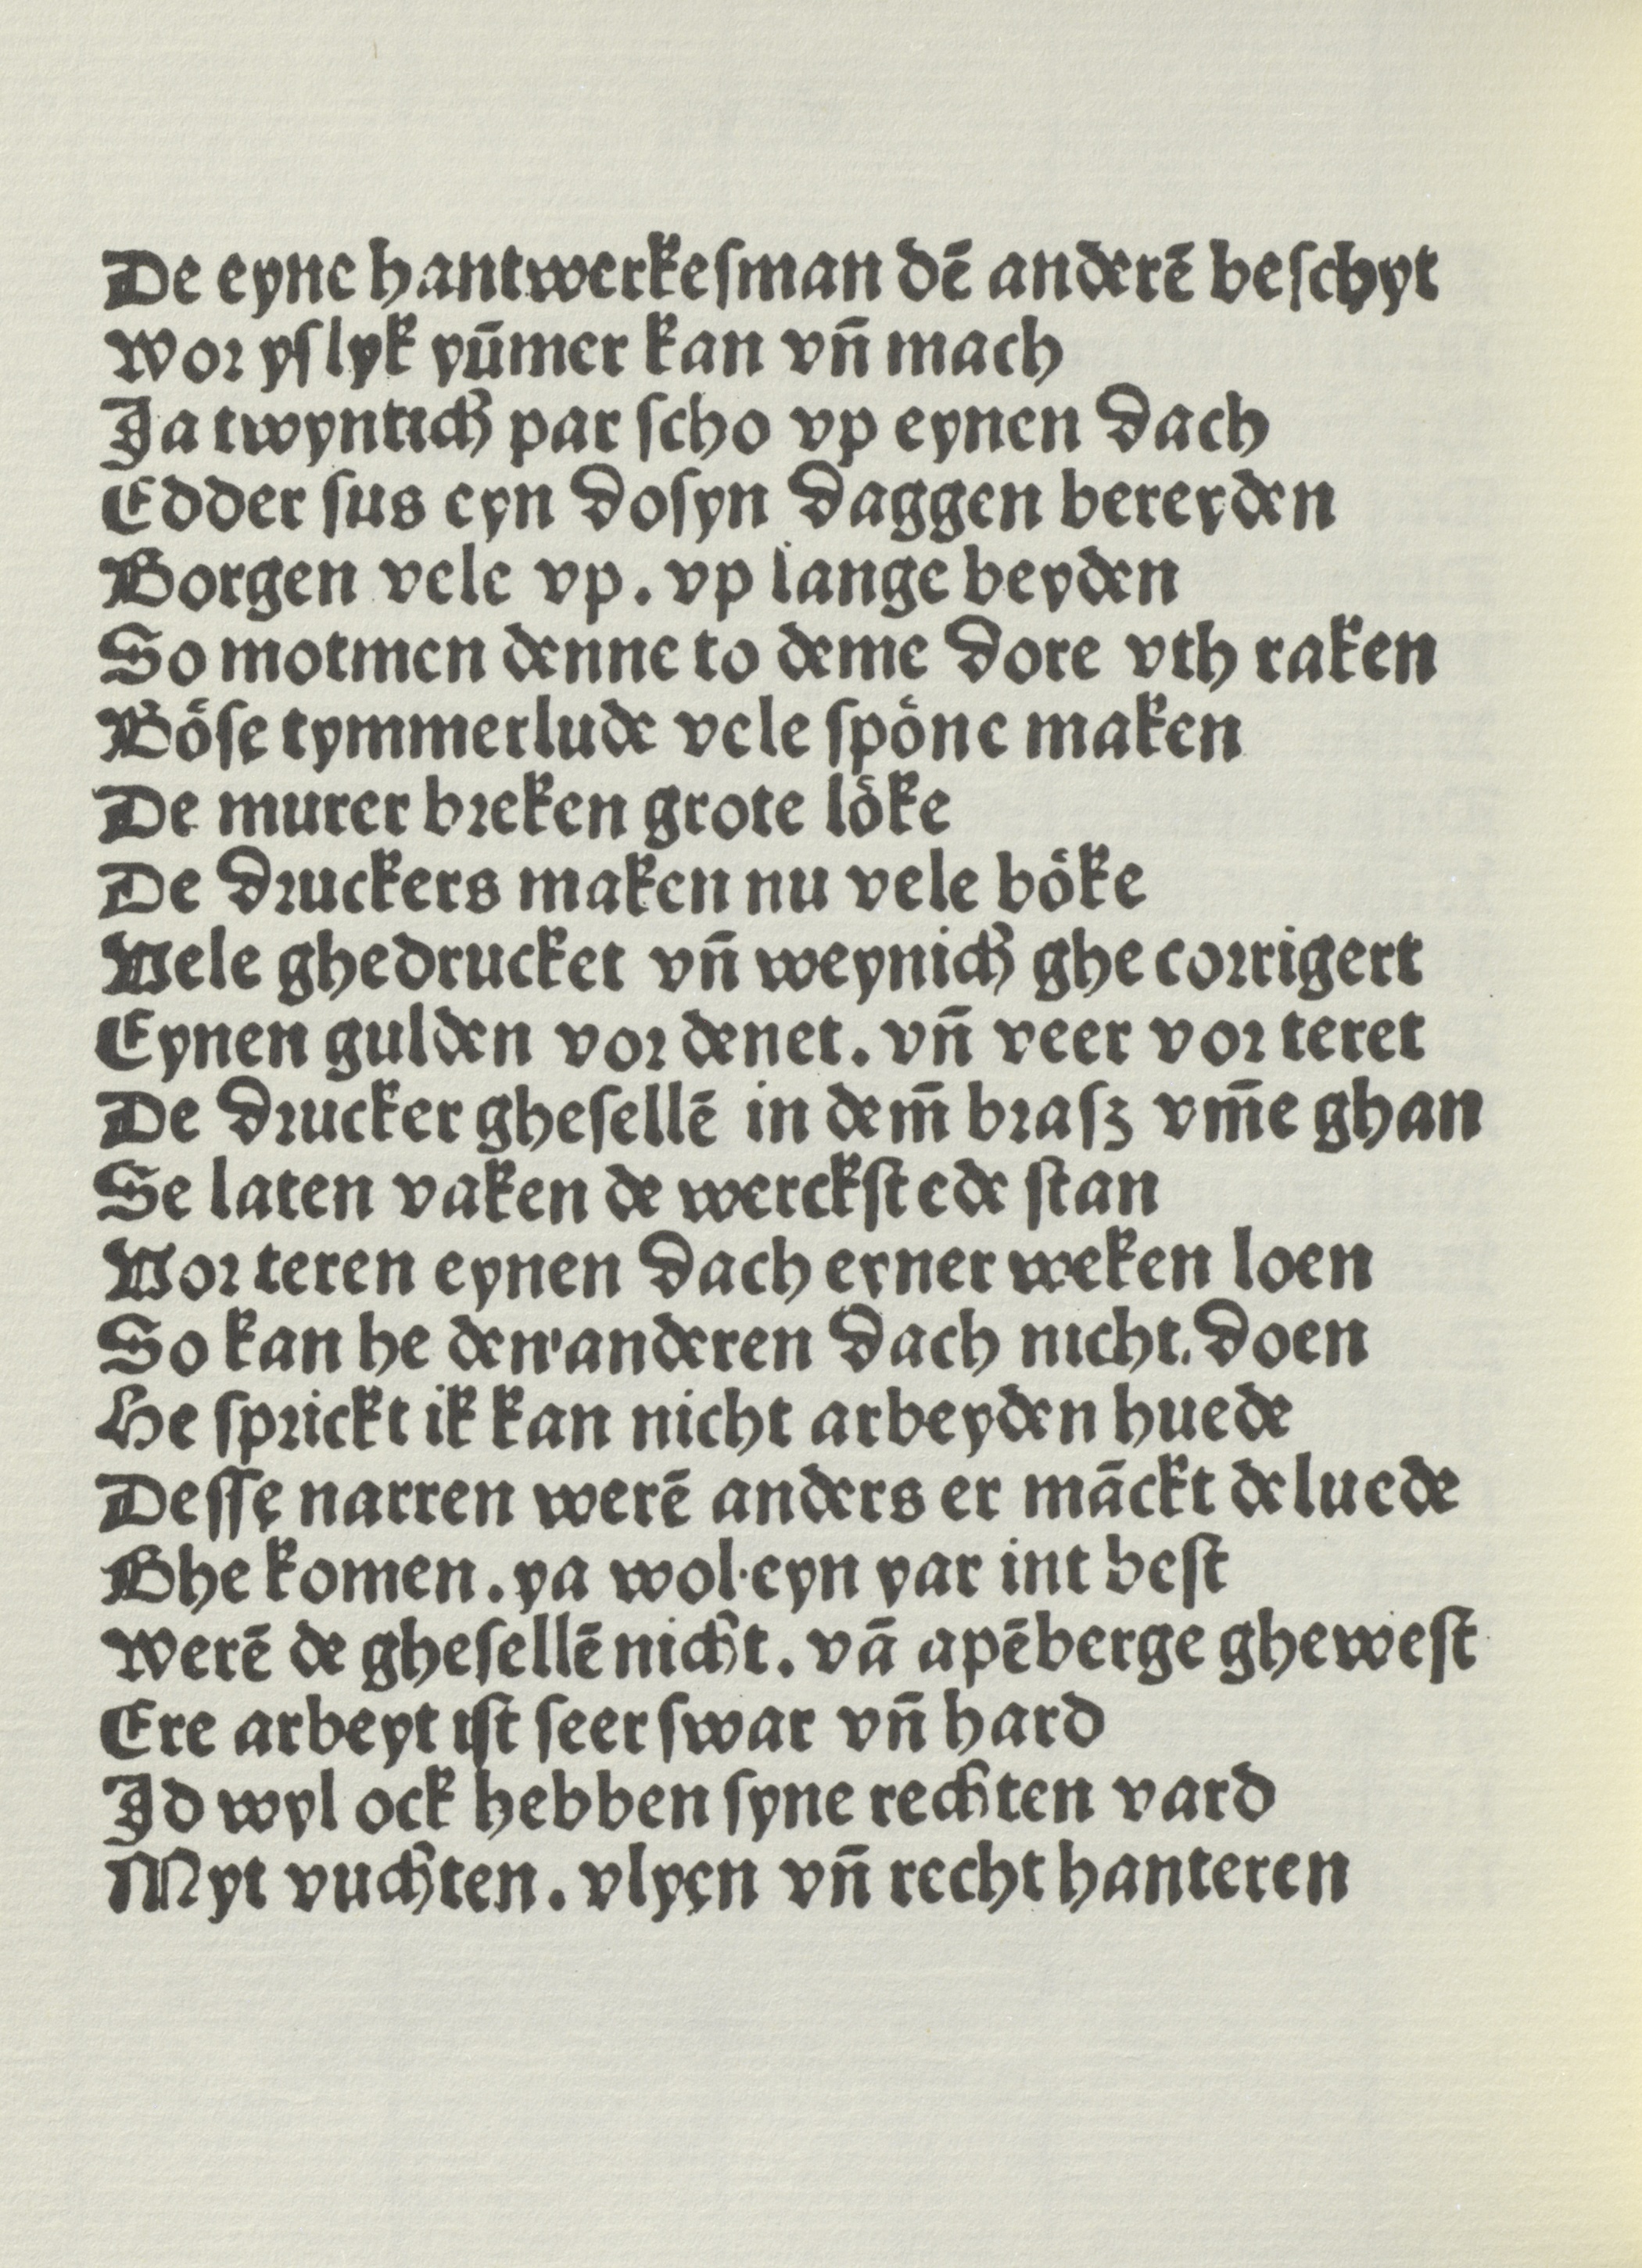 De eyne hantwerkeſman dē anderē beſchyt
Wor yſlyk yūmer kan vn̄ mach
Ja twyntich par ſcho vp eynen dach
Edder ſus eyn doſyn daggen bereyden
Borgen vele vp. vp lange beyden
So motmen denne to deme dore vth raken
Böſe tymmerlude vele ſpöne maken
De murer breken grote löke
De druckers maken nu vele böke
Vele ghedrucket vn̄ weynich ghe corrigert
Eynen gulden vor denet. vn̄ veer vor teret
De drucker gheſellē in dem̄ braſz vm̄e ghan
Se laten vaken de werckſtede ſtan
Vor teren eynen dach eyner weken loen
So kan he den anderen dach nicht. doen
He ſprickt ik kan nicht arbeyden huede
Deſſe narren werē anders er māckt de luede
Ghe komen. ya wol·eyn yar int beſt
Werē de gheſellē nicht. vā apēberge gheweſt
Ere arbeyt iſt ſeer ſwar vn̄ hard
Jd wyl ock hebben ſyne rechten vard
Myt vuchten. vlyen vn̄ recht hanteren